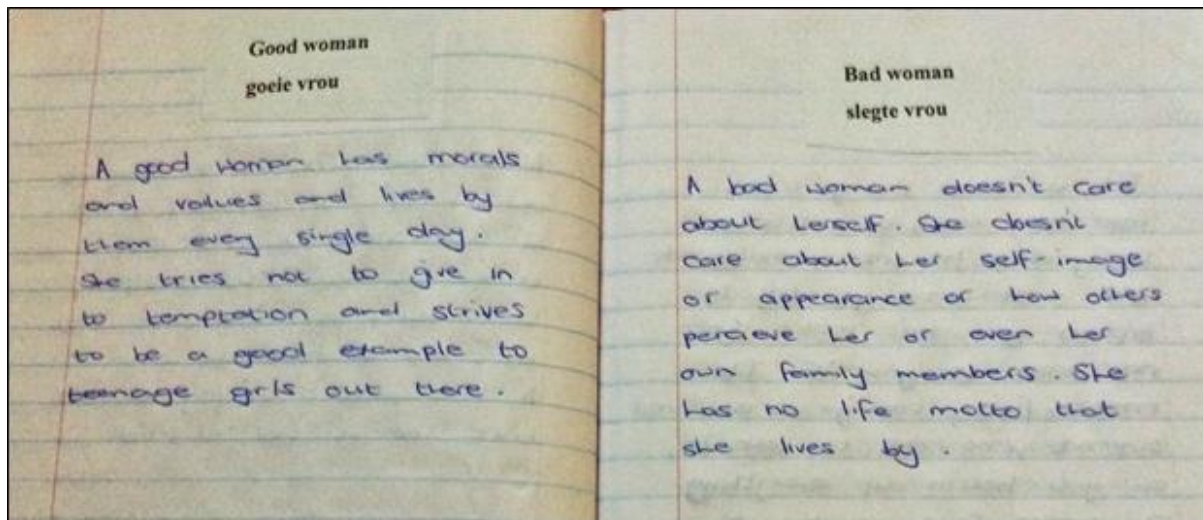 Good woman
goeie vrou
A good woman has morals
and values and lives by
them every single day.
She tries not to give in
to temptation and strives
to be a good example to
teenage girls out there.
Bad woman
slegte vrou
A bad woman doesn't care
about herself. She doesn't
care about her self-image
or appearance or how others
percieve her or even her
own family members. She
has no life motto that
she lives by.